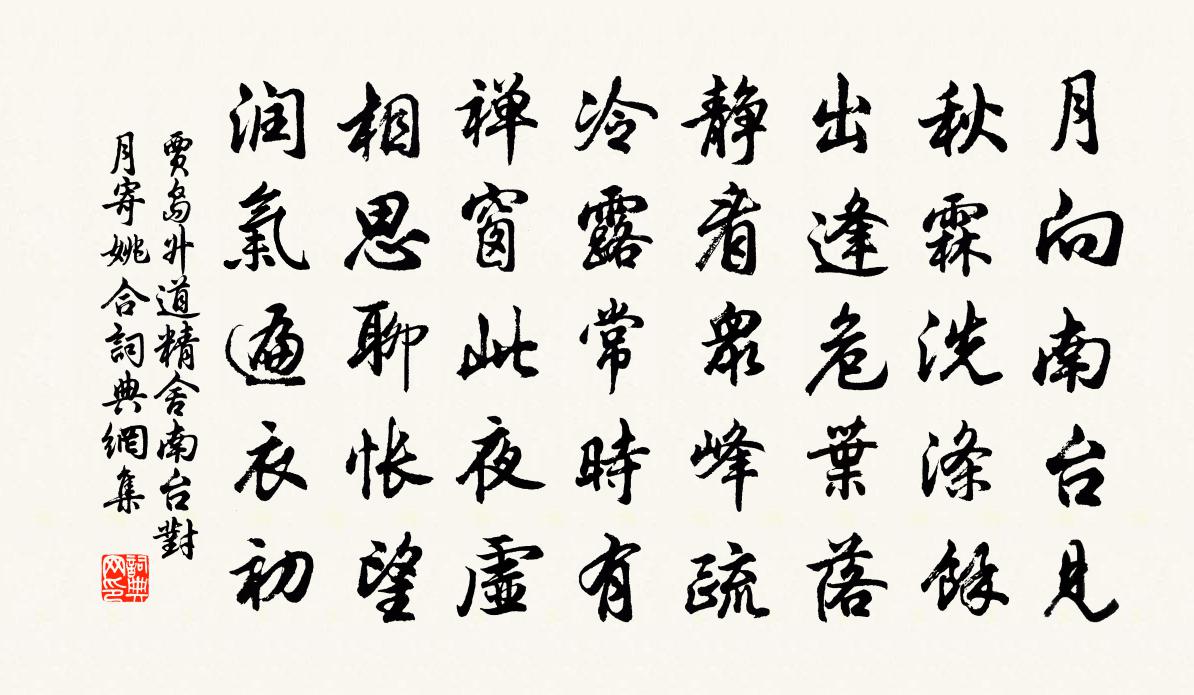 月向南台見
秋霖洗涤餘
出逢危葉落
静看衆峰疏
冷露常時有
禅窗此夜虛
相思聊怅望
润氣遍衣初
賈島升道精舍南台對
月寄姚合詞典網集
詞典网印